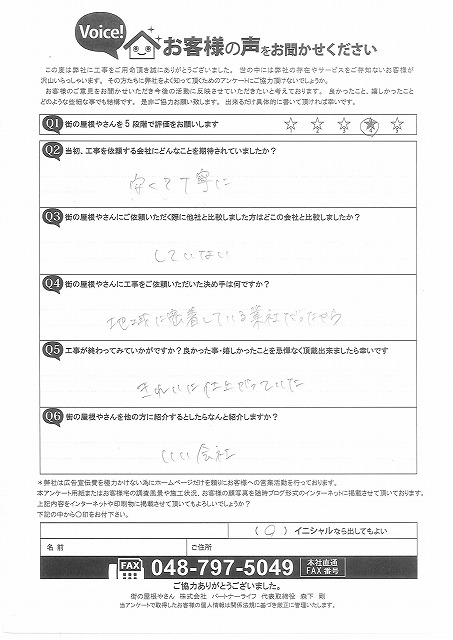 Voice! お客様の声をお聞かせください
この度は弊社に工事をご用命頂き誠にありがとうございました。 世の中には弊社の存在やサービスをご存知ないお客様が
沢山いらっしゃいます。 その方たちに弊社をよく知って頂くためのアンケートにご協力頂けないでしょうか。
お客様のご意見をお聞かせいただき今後の活動に反映させていただきたいと考えております。 良かったこと、嬉しかったこと
どのような些細な事でも結構です。 是非ご協力お願い致します。 出来るだけ具体的に書いて頂ければ幸いです。
Q1 街の屋根やさんを5段階で評価をお願いします ☆ ☆ ☆ ☆ ☆
Q2 当初、工事を依頼する会社にどんなことを期待されていましたか?
安くて丁寧に
Q3 街の屋根やさんにご依頼いただく際に他社と比較しました方はどこの会社と比較しましたか?
していない
Q4 街の屋根やさんに工事をご依頼いただいた決め手は何ですか?
地域に密着している業社だったから
Q5 工事が終わってみていかがですか?良かった事・嬉しかったことを忌憚なく頂戴出来ましたら幸いです
きれいに仕上がっていた
Q6 街の屋根やさんを他の方に紹介するとしたらなんと紹介しますか?
いい会社
*弊社は広告宣伝費を極力かけない為にホームページだけを頼りにお客様への営業活動を行っております。
本アンケート用紙またはお客様宅の調査風景や施工状況、お客様の顔写真を随時ブログ形式のインターネットに掲載させて頂いております。
上記内容をインターネットや印刷物に掲載させて頂いてもよろしいでしょうか?
下記の中から〇印をお付下さい。
( ○ ) イニシャルなら出してもよい
名 前 ご住所
FAX 048-797-5049 本社直通 FAX番号
ご協力ありがとうございました。
街の屋根やさん 株式会社 パートナーライフ 代表取締役 森下 剛
当アンケートで取得したお客様の個人情報は関係法規に基づき厳正に管理いたします。